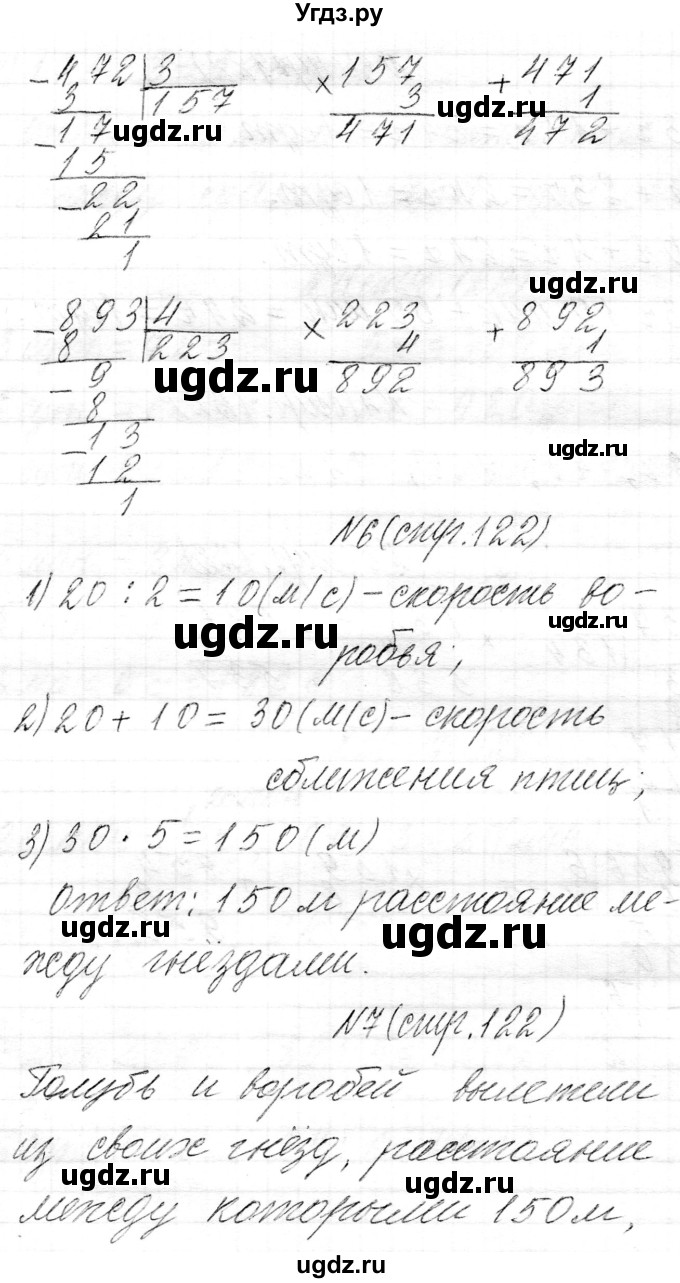 Угдз.ру
- 472 | 3
3 | 157
- 17
15
- 22
21
1
× 157
3
471
+ 471
1
472
ugdz.ru
ugdz.ru
- 893 | 4
8 | 223
- 9
8
- 13
12
1
× 223
4
892
+ 892
1
893
ugdz.ru
ugdz.ru
ugdz.ru
№6 (стр. 122).
1) 20 : 2 = 10 (м/с) – скорость во-
робья;
ugdz.ru
ugdz.ru
2) 20 + 10 = 30 (м/с) – скорость
сближения птиц;
3) 30 · 5 = 150 (м)
Ответ: 150 м расстояние ме-
ugdz.ru
ugdz.ru
жду гнёздами.
№7 (стр. 122)
Голубь и воробей вылетели
из своих гнёзд, расстояние
ugdz.ru
ugdz.ru
между которыми 150 м,
ugdz.ru